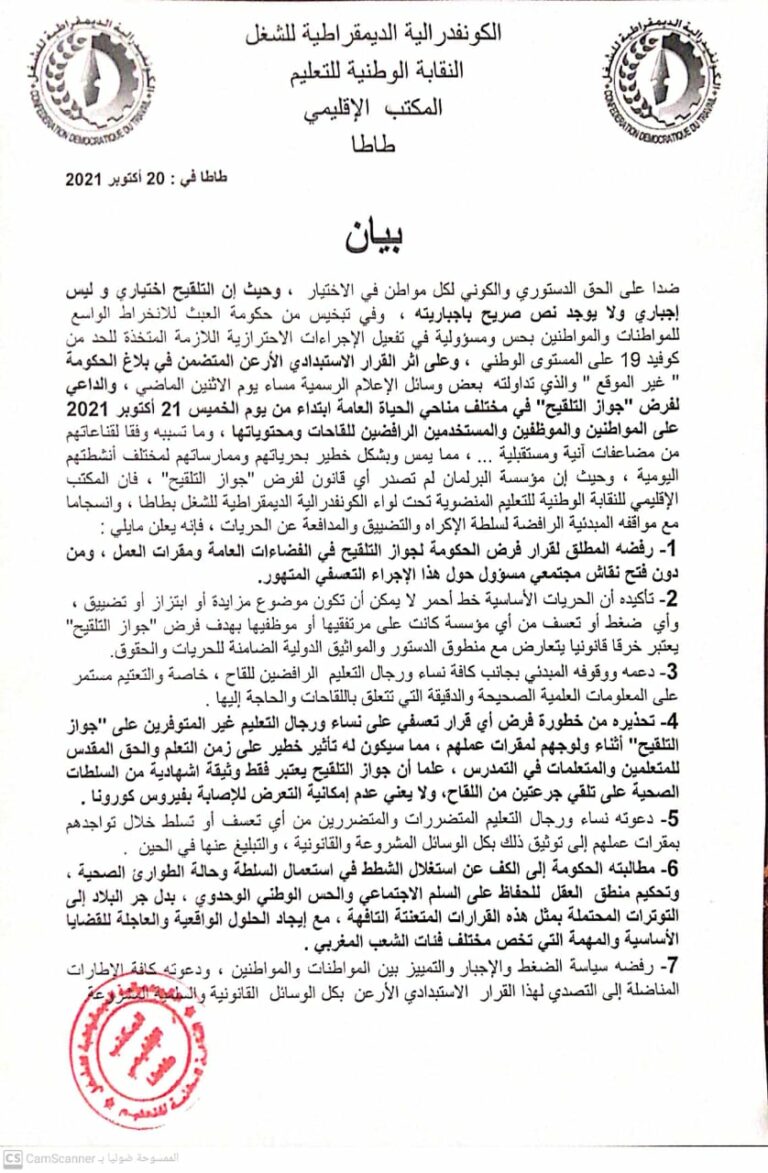 الكونفدرالية الديمقراطية للشغل
النقابة الوطنية للتعليم
المكتب الإقليمي
طاطا
الكونفدرالية الديمقراطية للشغل
CONFEDERATION DEMOCRATIQUE DU TRAVAIL
الكونفدرالية الديمقراطية للشغل
CONFEDERATION DEMOCRATIQUE DU TRAVAIL
طاطا في : 20 أكتوبر 2021
بيان
ضدا على الحق الدستوري والكوني لكل مواطن في الاختيار ، وحيث إن التلقيح اختياري و ليس
إجباري ولا يوجد نص صريح بإجباريته ، وفي تبخيس من حكومة العبث للانخراط الواسع
للمواطنات والمواطنين بحس ومسؤولية في تفعيل الإجراءات الاحترازية اللازمة المتخذة للحد من
كوفيد 19 على المستوى الوطني ، وعلى اثر القرار الاستبدادي الأرعن المتضمن في بلاغ الحكومة
" غير الموقع " والذي تداولته بعض وسائل الإعلام الرسمية مساء يوم الاثنين الماضي ، والداعي
لفرض "جواز التلقيح" في مختلف مناحي الحياة العامة ابتداء من يوم الخميس 21 أكتوبر 2021
على المواطنين والموظفين والمستخدمين الرافضين للقاحات ومحتوياتها ، وما تسببه وفقا لقناعاتهم
من مضاعفات آنية ومستقبلية ... ، مما يمس وبشكل خطير بحرياتهم وممارساتهم لمختلف أنشطتهم
اليومية ، وحيث إن مؤسسة البرلمان لم تصدر أي قانون لفرض "جواز التلقيح" ، فان المكتب
الإقليمي للنقابة الوطنية للتعليم المنضوية تحت لواء الكونفدرالية الديمقراطية للشغل بطاطا ، وانسجاما
مع مواقفه المبدئية الرافضة لسلطة الإكراه والتضييق والمدافعة عن الحريات ، فإنه يعلن مايلي :
1- رفضه المطلق لقرار فرض الحكومة لجواز التلقيح في الفضاءات العامة ومقرات العمل ، ومن
دون فتح نقاش مجتمعي مسؤول حول هذا الإجراء التعسفي المتهور.
2- تأكيده أن الحريات الأساسية خط أحمر لا يمكن أن تكون موضوع مزايدة أو ابتزاز أو تضييق ،
وأي ضغط أو تعسف من أي مؤسسة كانت على مرتفقيها أو موظفيها بهدف فرض "جواز التلقيح"
يعتبر خرقا قانونيا يتعارض مع منطوق الدستور والمواثيق الدولية الضامنة للحريات والحقوق.
3- دعمه ووقوفه المبدئي بجانب كافة نساء ورجال التعليم الرافضين للقاح ، خاصة والتعتيم مستمر
على المعلومات العلمية الصحيحة والدقيقة التي تتعلق باللقاحات والحاجة إليها .
4- تحذيره من خطورة فرض أي قرار تعسفي على نساء ورجال التعليم غير المتوفرين على "جواز
التلقيح" أثناء ولوجهم لمقرات عملهم ، مما سيكون له تأثير خطير على زمن التعلم والحق المقدس
للمتعلمين والمتعلمات في التمدرس ، علما أن جواز التلقيح يعتبر فقط وثيقة اشهادية من السلطات
الصحية على تلقي جرعتين من اللقاح، ولا يعني عدم إمكانية التعرض للإصابة بفيروس كورونا .
5- دعوته نساء ورجال التعليم المتضررات والمتضررين من أي تعسف أو تسلط خلال تواجدهم
بمقرات عملهم إلى توثيق ذلك بكل الوسائل المشروعة والقانونية ، والتبليغ عنها في الحين .
6- مطالبته الحكومة إلى الكف عن استغلال الشطط في استعمال السلطة وحالة الطوارئ الصحية ،
وتحكيم منطق العقل للحفاظ على السلم الاجتماعي والحس الوطني الوحدوي ، بدل جر البلاد إلى
التوترات المحتملة بمثل هذه القرارات المتعنتة التافهة ، مع إيجاد الحلول الواقعية والعاجلة للقضايا
الأساسية والمهمة التي تخص مختلف فئات الشعب المغربي .
7- رفضه سياسة الضغط والإجبار والتمييز بين المواطنات والمواطنين ، ودعوته كافة الإطارات
المناضلة إلى التصدي لهذا القرار الاستبدادي الأرعن بكل الوسائل القانونية والسلمية المشروعة
المكتب
الإقليمي
طاطا
الممسوحة ضوئيا بـ CamScanner
CS